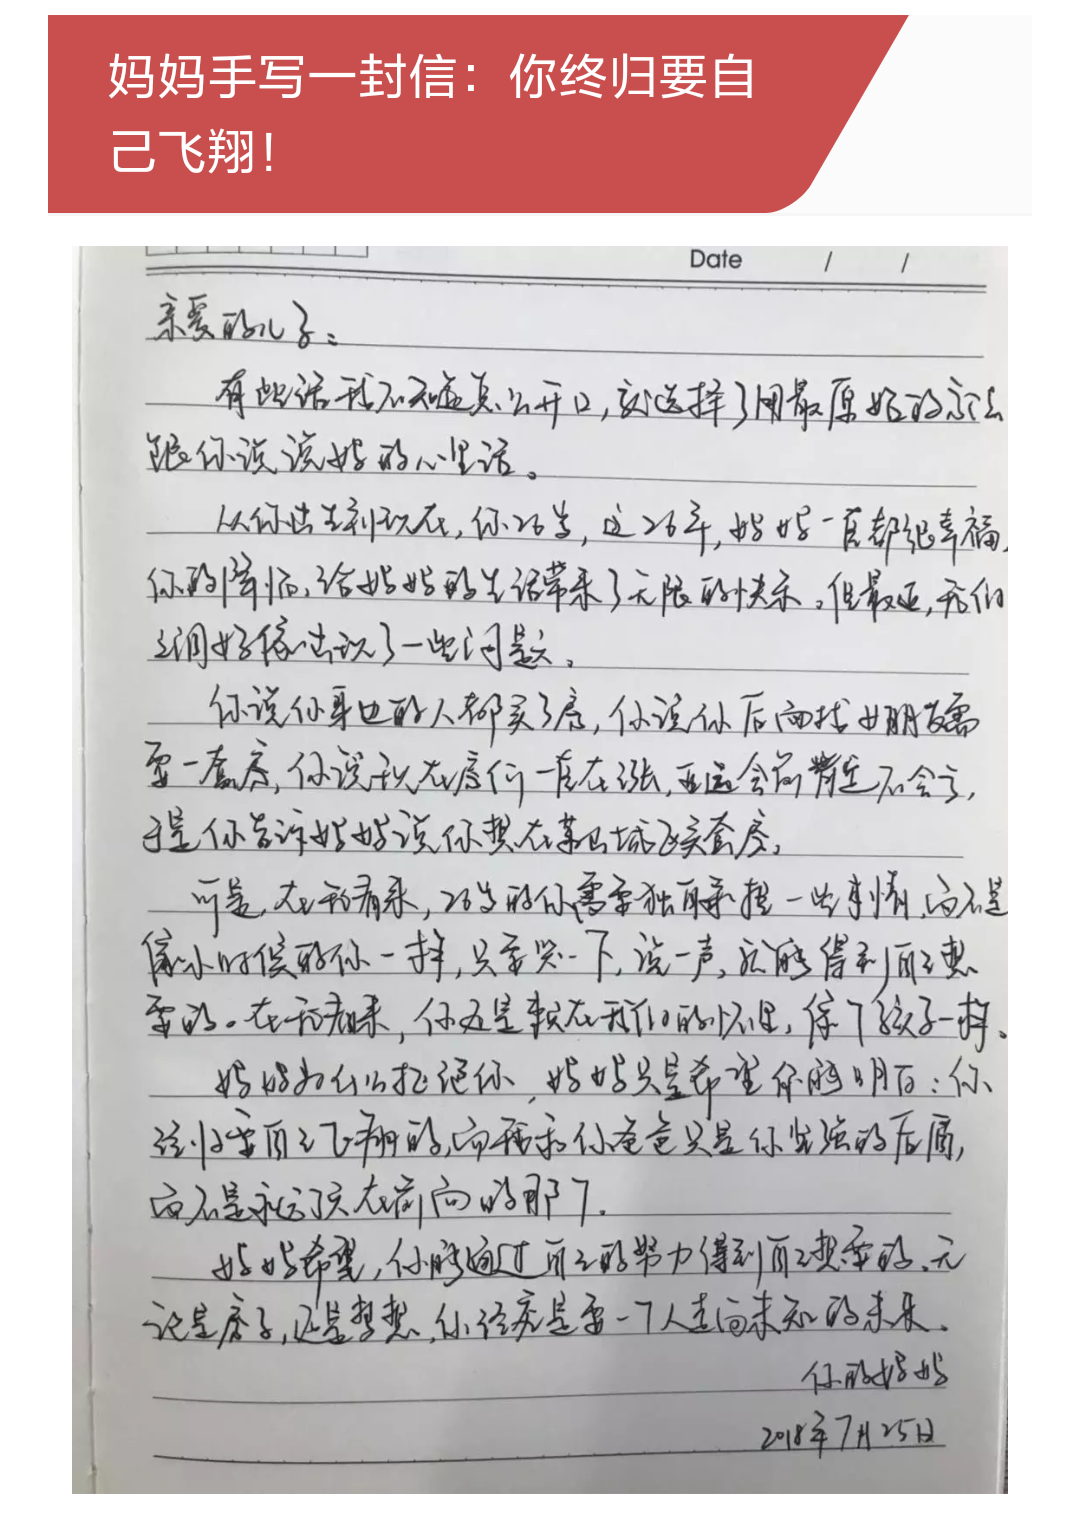 妈妈手写一封信：你终归要自
己飞翔！
Date / /
亲爱的儿子：
有些话我不知道怎么开口，就选择了用最原始的方法
跟你说说妈的心里话。
从你出生到现在，你26岁，这26年，妈妈一直都很幸福，
你的降临，给妈妈的生活带来了无限的快乐。但最近，我们
之间好像出现了一些问题。
你说你身边的人都买了房，你说你后面找女朋友需
要一套房，你说现在房价一直在涨，亚运会前肯定不会亏，
于是你告诉妈妈说你想在萧山城区买套房。
可是，在我看来，26岁的你需要独自承担一些事情，而不是
像小时候的你一样，只要哭一下，说一声，就能得到自己想
要的。在我看来，你还是赖在我们的怀里，像个孩子一样。
妈妈为什么拒绝你，妈妈只是希望你能明白：你
终归要自己飞翔的，而我和你爸爸只是你坚强的后盾，
而不是永远顶在前面的那个。
妈妈希望，你能通过自己的努力得到自己想要的，无
论是房子，还是梦想，你终究是要一个人走向未知的未来。
你的妈妈
2018年7月25日